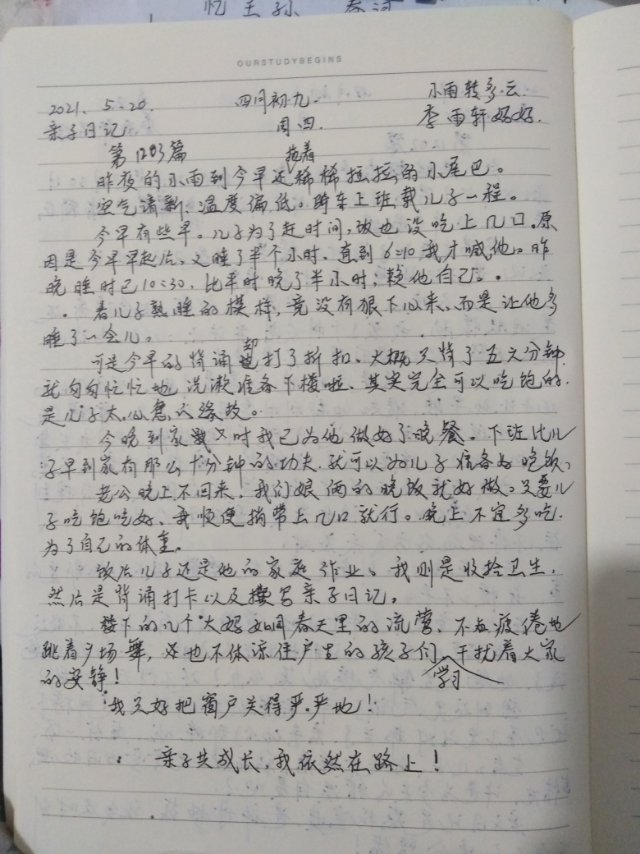 忆王孙 春词
OURSTUDYBEGINS
2021. 5.20. 四月初九. 小雨转多云.
亲子日记 周四. 李雨轩妈妈.
第1203篇 拖着
昨夜的小雨到今早还稀稀拉拉的小尾巴。
空气清新、温度偏低。骑车上班载儿子一程。
今早有些早。儿子为了赶时间,饭也没吃上几口。原
因是今早早起后、又睡了半个小时、直到6:10我才喊他。昨
晚睡时已10:30,比平时晚了半小时;赖他自己。
看儿子熟睡的模样,竟没有狠下心来、而是让他多
睡了一会儿。
可是今早的背诵却打了折扣、大概只背了五六分钟
就匆匆忙忙地洗漱准备下楼啦、其实完全可以吃饱的.
是儿子太心急的缘故。
今晚到家时我已为他做好了晚餐。下班比儿
子早到家有那么十分钟的功夫.就可以为儿子准备好晚饭、
老公晚上不回来,我们娘俩的晚饭就好做。只要儿
子吃饱吃好、我顺便捎带上几口就行。晚上不宜多吃.
为了自己的体重。
饭后儿子还是他的家庭作业、我则是收拾卫生,
然后是背诵打卡以及撰写亲子日记。
楼下的几个大妈如同春天里的流莺、不知疲倦地
跳着广场舞,也不体谅住户里的孩子们学习,干扰着大家
的安静!
我只好把窗户关得严严地!
亲子共成长,我依然在路上!